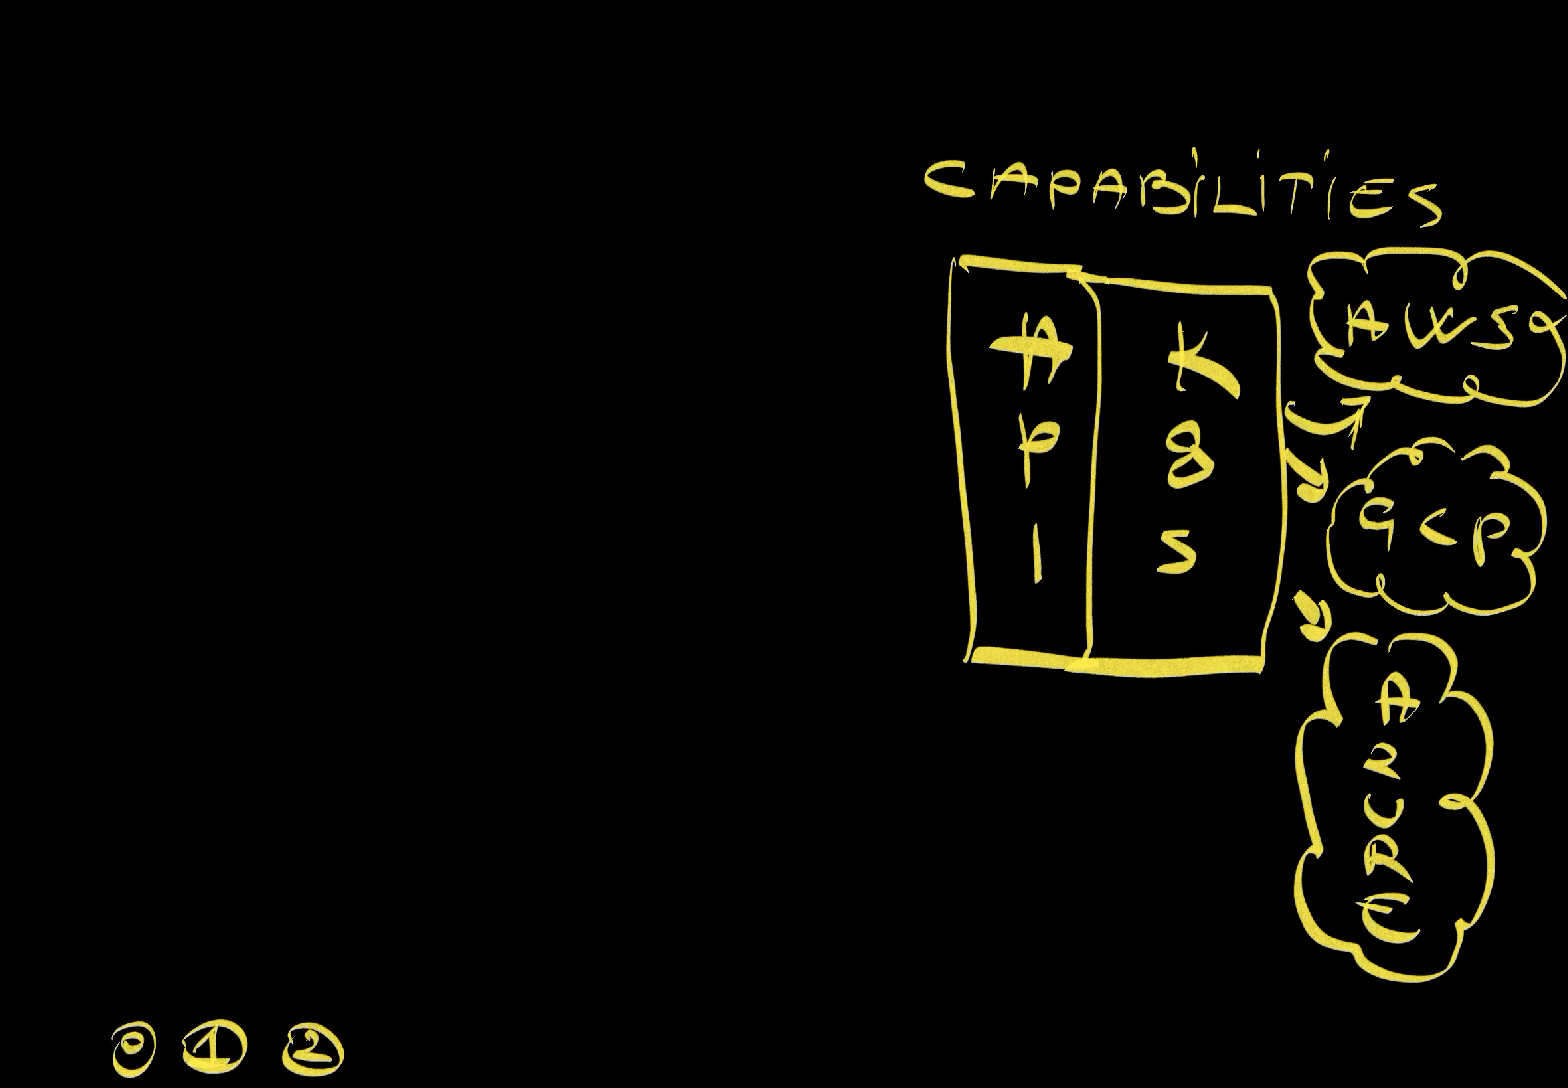 CAPABILITIES
API
K8S
AWS
GCP
AZURE
0 1 2